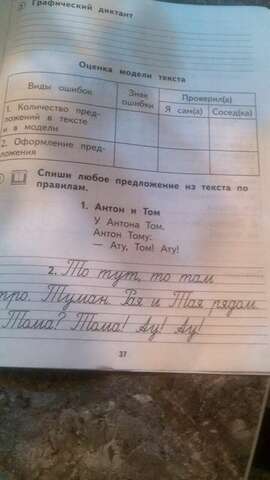 Графический диктант
Оценка модели текста
Виды ошибок
Знак ошибки
Проверил(а)
Я сам(а)
Сосед(ка)
1. Количество пред-
ложений в тексте
и в модели
2. Оформление пред-
ложения
Спиши любое предложение из текста по
правилам.
1. Антон и Том
У Антона Том.
Антон Тому:
— Ату, Том! Ату!
2. То тут, то там
тро. Туман. Рая и Тая рядом
Тома? Тома! Ау! Ау!
37